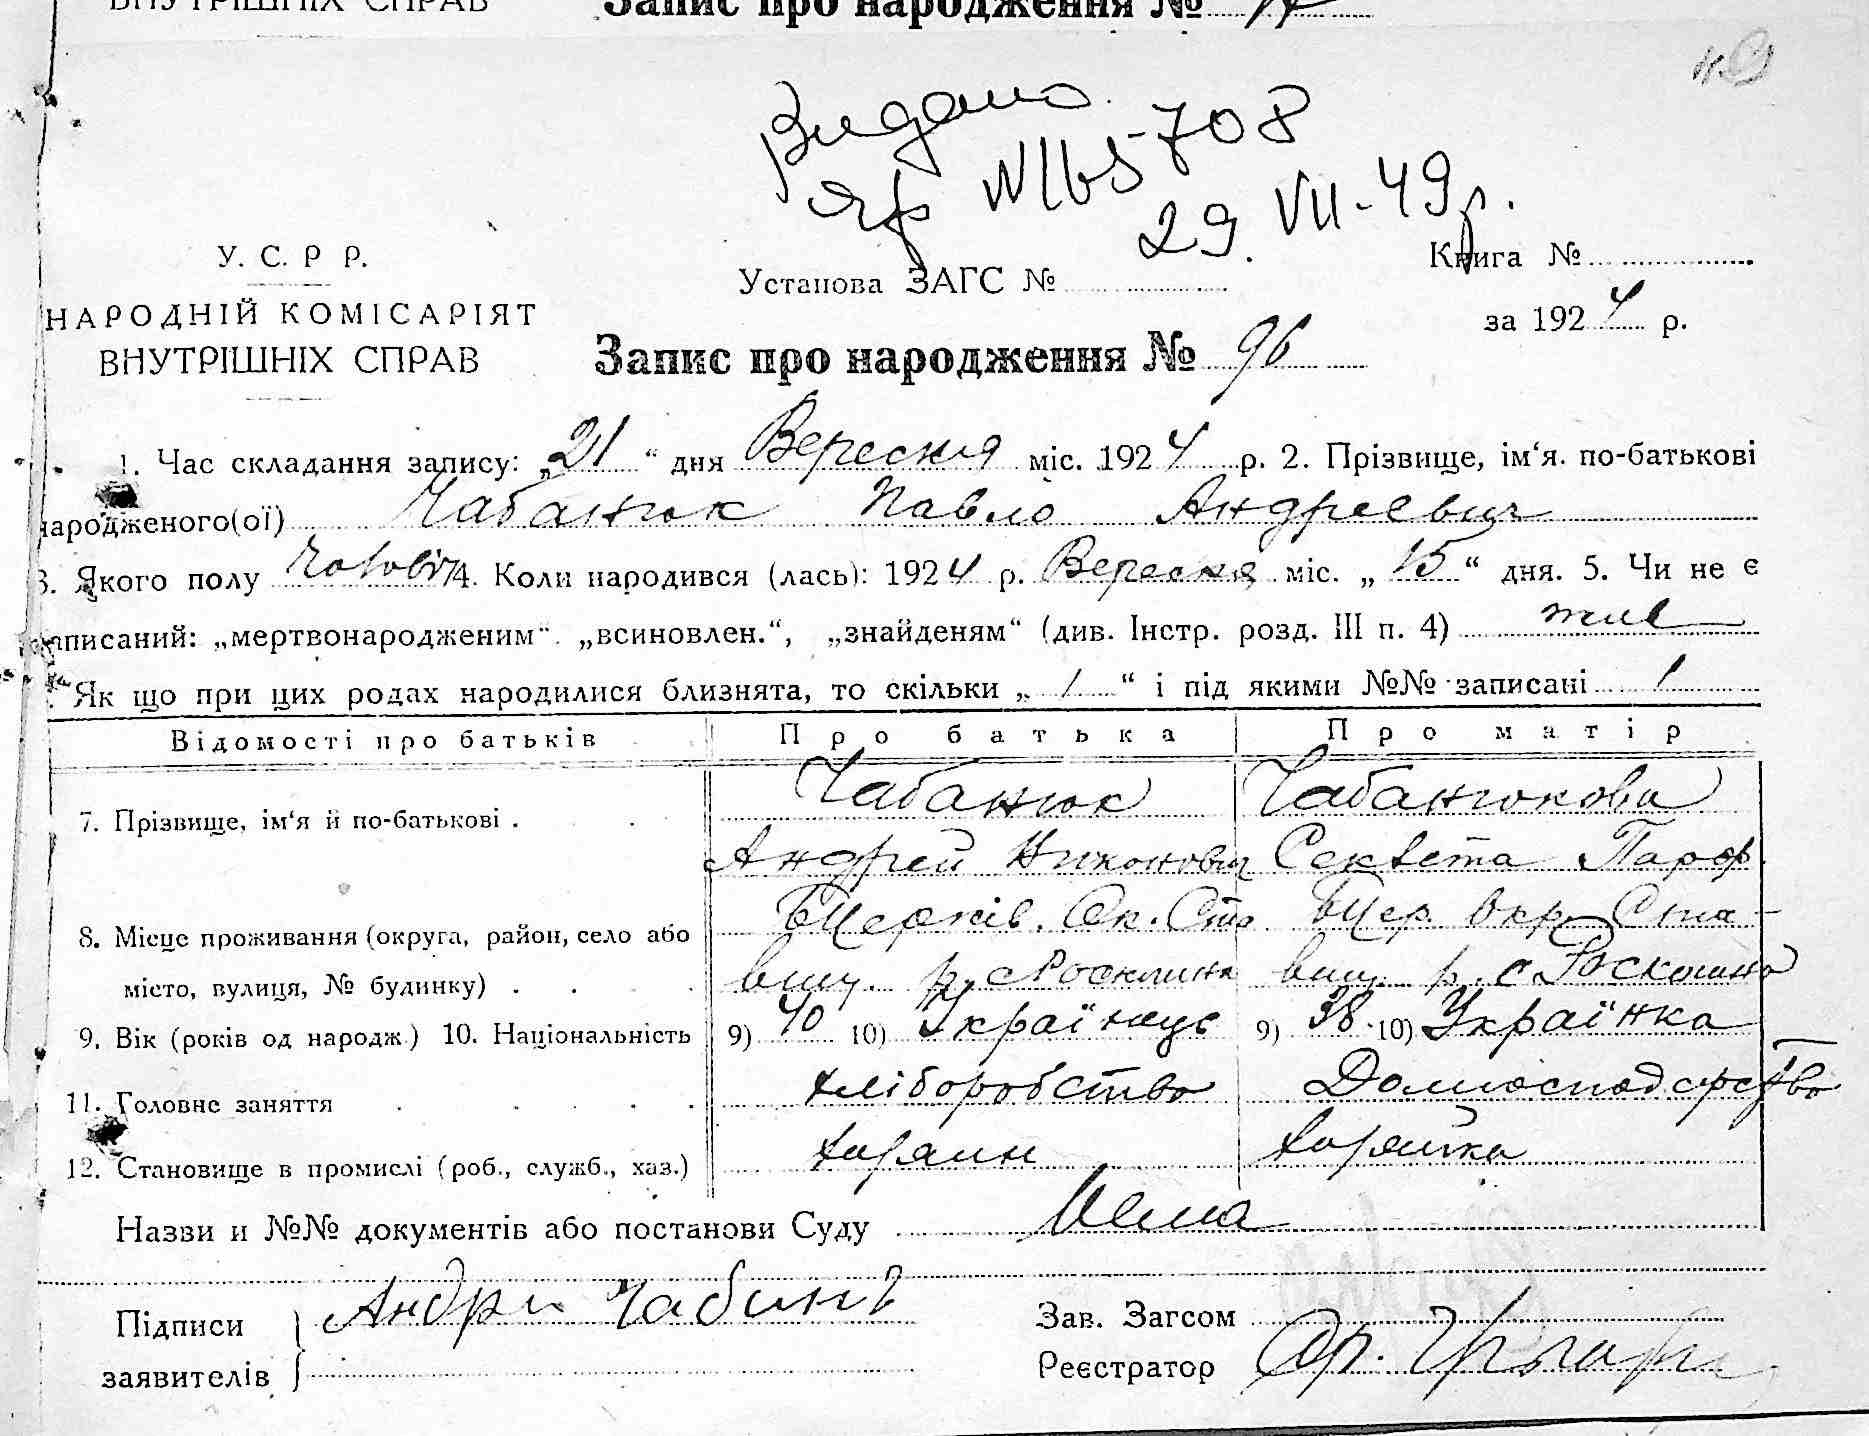 ВНУТРІШНІХ СПРАВ Запис про народження №
Видано
ЯР №165-708
29. VII-49р.
У. С. Р Р.
НАРОДНІЙ КОМІСАРІЯТ
ВНУТРІШНІХ СПРАВ
Установа ЗАГС №
Книга №
за 1924 р.
Запис про народження № 96
1. Час складання запису: „21“ дня Вересня міс. 1924 р. 2. Прізвище, ім‘я. по-батькові
народженого(ої) Чабанюк Павло Андреевич
3. Якого полу Чоловіч 4. Коли народився (лась): 1924 р. Вересня міс. „15“ дня. 5. Чи не є
записаний: „мертвонародженим“. „всиновлен.“, „знайденям“ (див. Інстр. розд. III п. 4) живе
Як що при цих родах народилися близнята, то скільки „ / “ і під якими №№ записані /
Відомості про батьків Про батька Про матір
7. Прізвище, ім‘я й по-батькові . Чабанюк Чабанюкова
Андрей Никонович Секлета Парф.
8. Місце проживання (округа, район, село або БЦерків. Ок. Ста БЦер. Окр. Ста-
місто, вулиця, № будинку) . вищ. р. с Роскішна вищ. р. с Роскошна
9. Вік (років од народж.) 10. Національність 9) 40 10) Українець 9) 38 10) Українка
11. Головне заняття хліборобство Домгосподарство
12. Становище в промислі (роб., служб., хаз.) хазяин хазяйка
Назви и №№ документів або постанови Суду Нема
Підписи Андри Чабинъ Зав. Загсом
заявителів Реєстратор